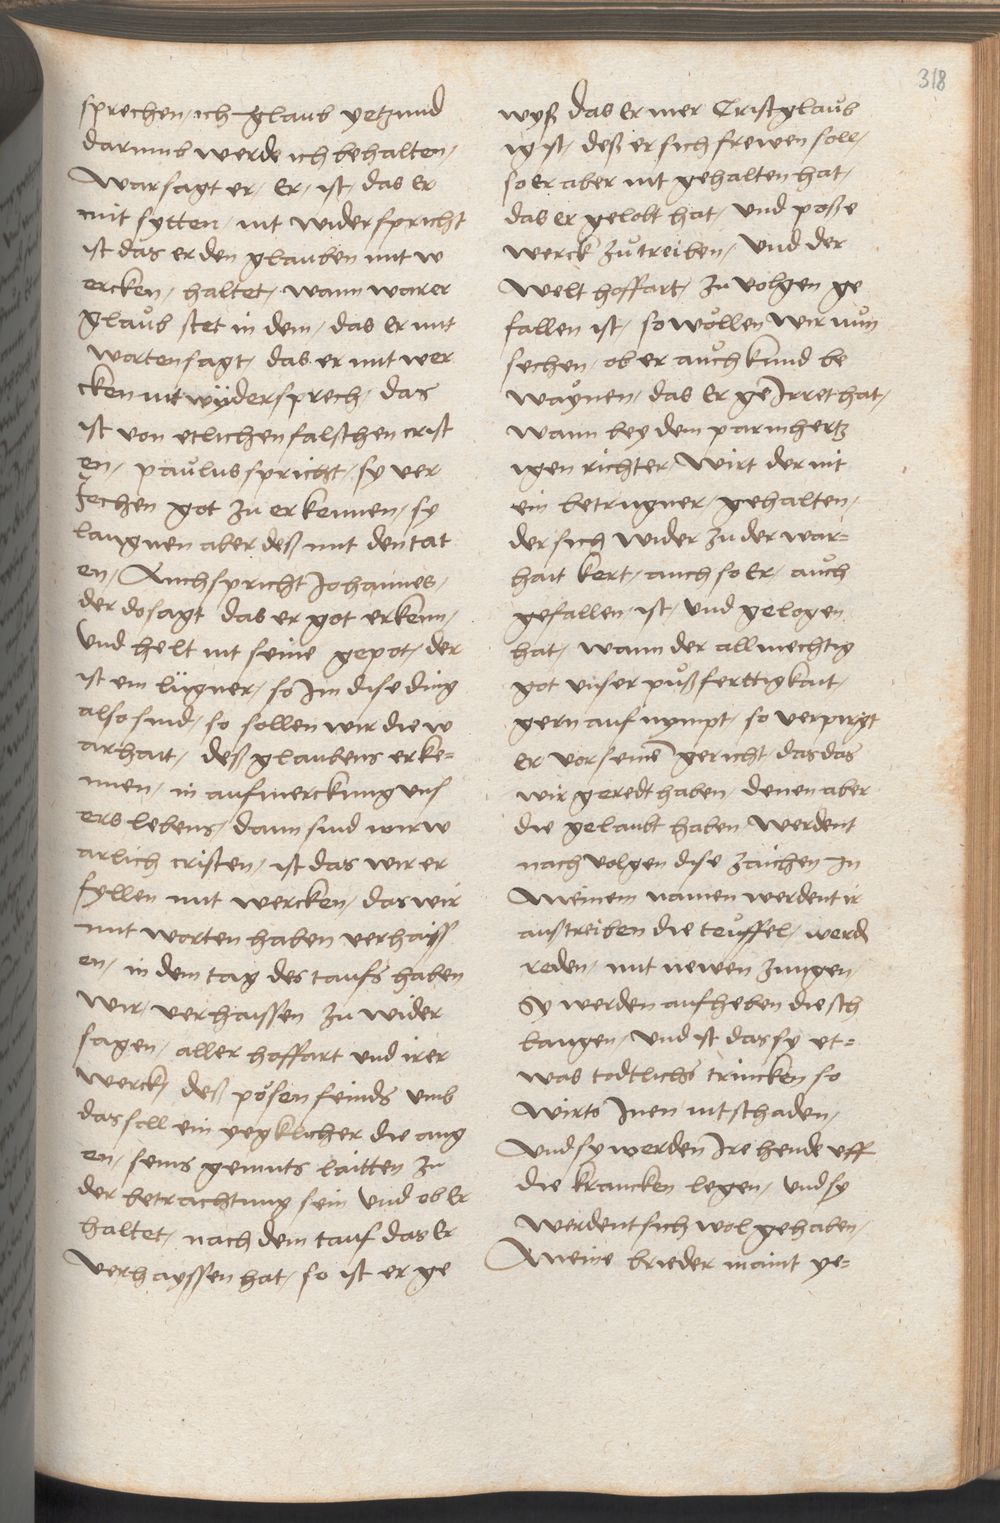 318
sprechen, ich glaub yetzund
darumb werde ich behalten,
War sagt er, Er, ist, das Er
mit sytten, nit widerspricht
ist das er den glauben mit w
ercken, haltet, wann warer
glaub stet in dem, das Er mit
worten sagt, das er mit wer
cken nit wÿdersprech, das
ist von etlichen falschen crist
en, paulus spricht, sy ver
jechen got zu erkennen, sy
laugnen aber deß mit den tat
en, Auch spricht Johannes,
der do sagt das er got erkenn,
Und helt nit seine gepot, der
ist ein lügner, so Jm dise ding
also sind, so sollen wir die w
arhait, deß glaubens erke=
nnen, in aufmerckung uns
ers lebens, dann sind wir w
arlich cristen, ist das wir er
fyllen mit wercken, das wir
mit worten haben verhaiss
en, in dem tag des taufs haben
Wir, verhaissen zu wider
sagen, aller hoffart und irer
Werck, deß pösen feinds umb
das soll ein yegklicher die aug
en, seins gemuts laitten zu
der betrachtung sein Und ob Er
haltet, nach dem tauf das Er
Verhayssen hat, so ist er ge
wyß das Er mer Cristglaub
ig ist, deß er sich frewen soll,
so Er aber nit gehalten hat,
das er gelobt hat, Und posze
werck zu treiben, Und der
Welt hoffart, zu volgen ge
fallen ist, so wöllen Wir nun
sechen, ob er auch kund be
waynen, das Er geJrret hat,
Wann bey dem parmhertz
igen richter, Wirt der nit
ein betrugner, gehalten,
der sich Wider zu der war=
hait kert, auch so Er, auch
gefallen, ist, Und gelogen
hat, wann der allmechtig
got unser pußferttigkait,
gern auf nympt, so verpirgt
Er vor seinē gericht das das
wir geredt haben, denen aber
die gelaubt haben, Werdent
nach volgen dise zaichen Jn
Meinem namen werdent ir
austreiben die teuffel, werd
reden, mit newen zungen,
Sy werden aufheben die sch
langen, Und ist das sy et=
was todtlichs trincken so
Wirts Jnen nit schaden,
Und sy werden Jre hende uff
die krancken legen, und sy
Werdent sich wol gehaben,
Meine brieder maint ye=